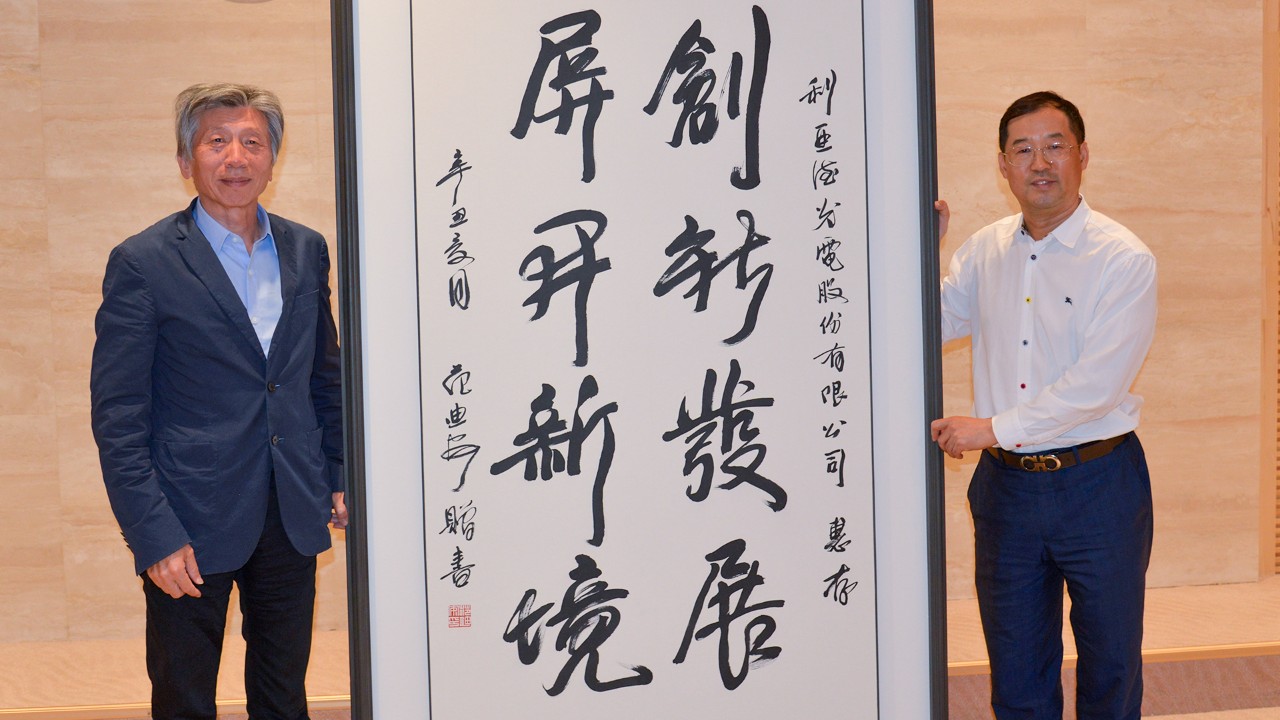 利亚德光電股份有限公司 惠存
創新發展
屏開新境
辛丑夏月 范迪安 贈書